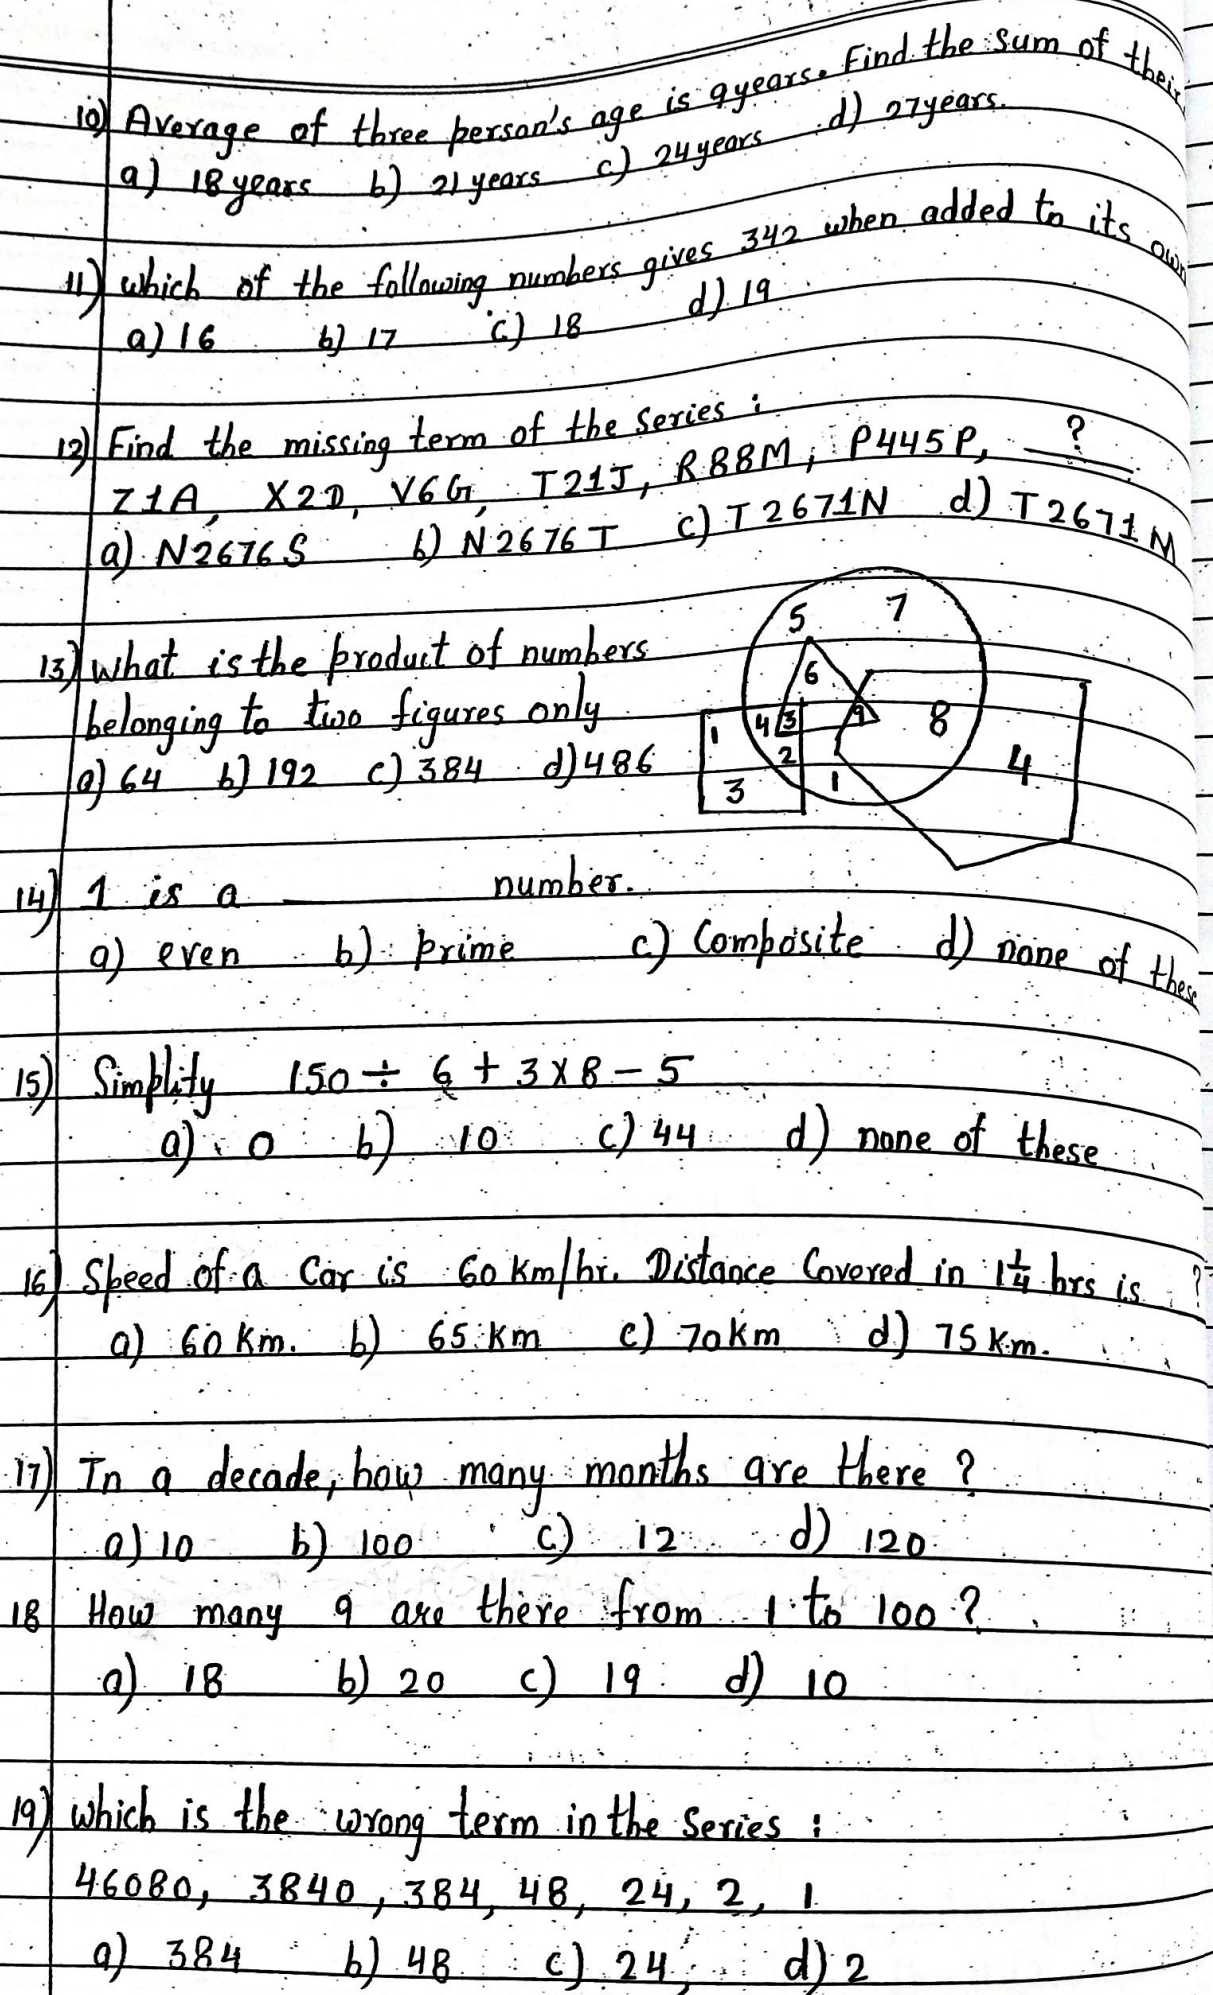 10) Average of three person's age is 9years. Find the sum of their
a) 18 years b) 21 years c) 24 years d) 27years.
11) which of the following numbers gives 342 when added to its own
a) 16 b) 17 c) 18 d) 19
12) Find the missing term of the Series :
Z1A, X2D, V6G, T21J, R88M, P445P, ?
a) N2676S b) N2676T c) T2671N d) T2671M
13) what is the product of numbers
belonging to two figures only
a) 64 b) 192 c) 384 d) 486
5 7
6
1 4 3 9 8
2 4
3 1
14) 1 is a ______ number.
a) even b) prime c) Composite d) none of these
15) Simplity 150 ÷ 6 + 3 x 8 - 5
a) 0 b) 10 c) 44 d) none of these
16) Speed of a Car is 60 Km/hr. Distance Covered in 1 1/4 hrs is ?
a) 60 Km. b) 65 Km c) 70 Km d) 75 Km.
17) In a decade, how many months are there ?
a) 10 b) 100 c) 12 d) 120
18 How many 9 are there from 1 to 100 ?
a) 18 b) 20 c) 19 d) 10
19) which is the wrong term in the Series :
46080, 3840, 384, 48, 24, 2, 1
a) 384 b) 48 c) 24, d) 2